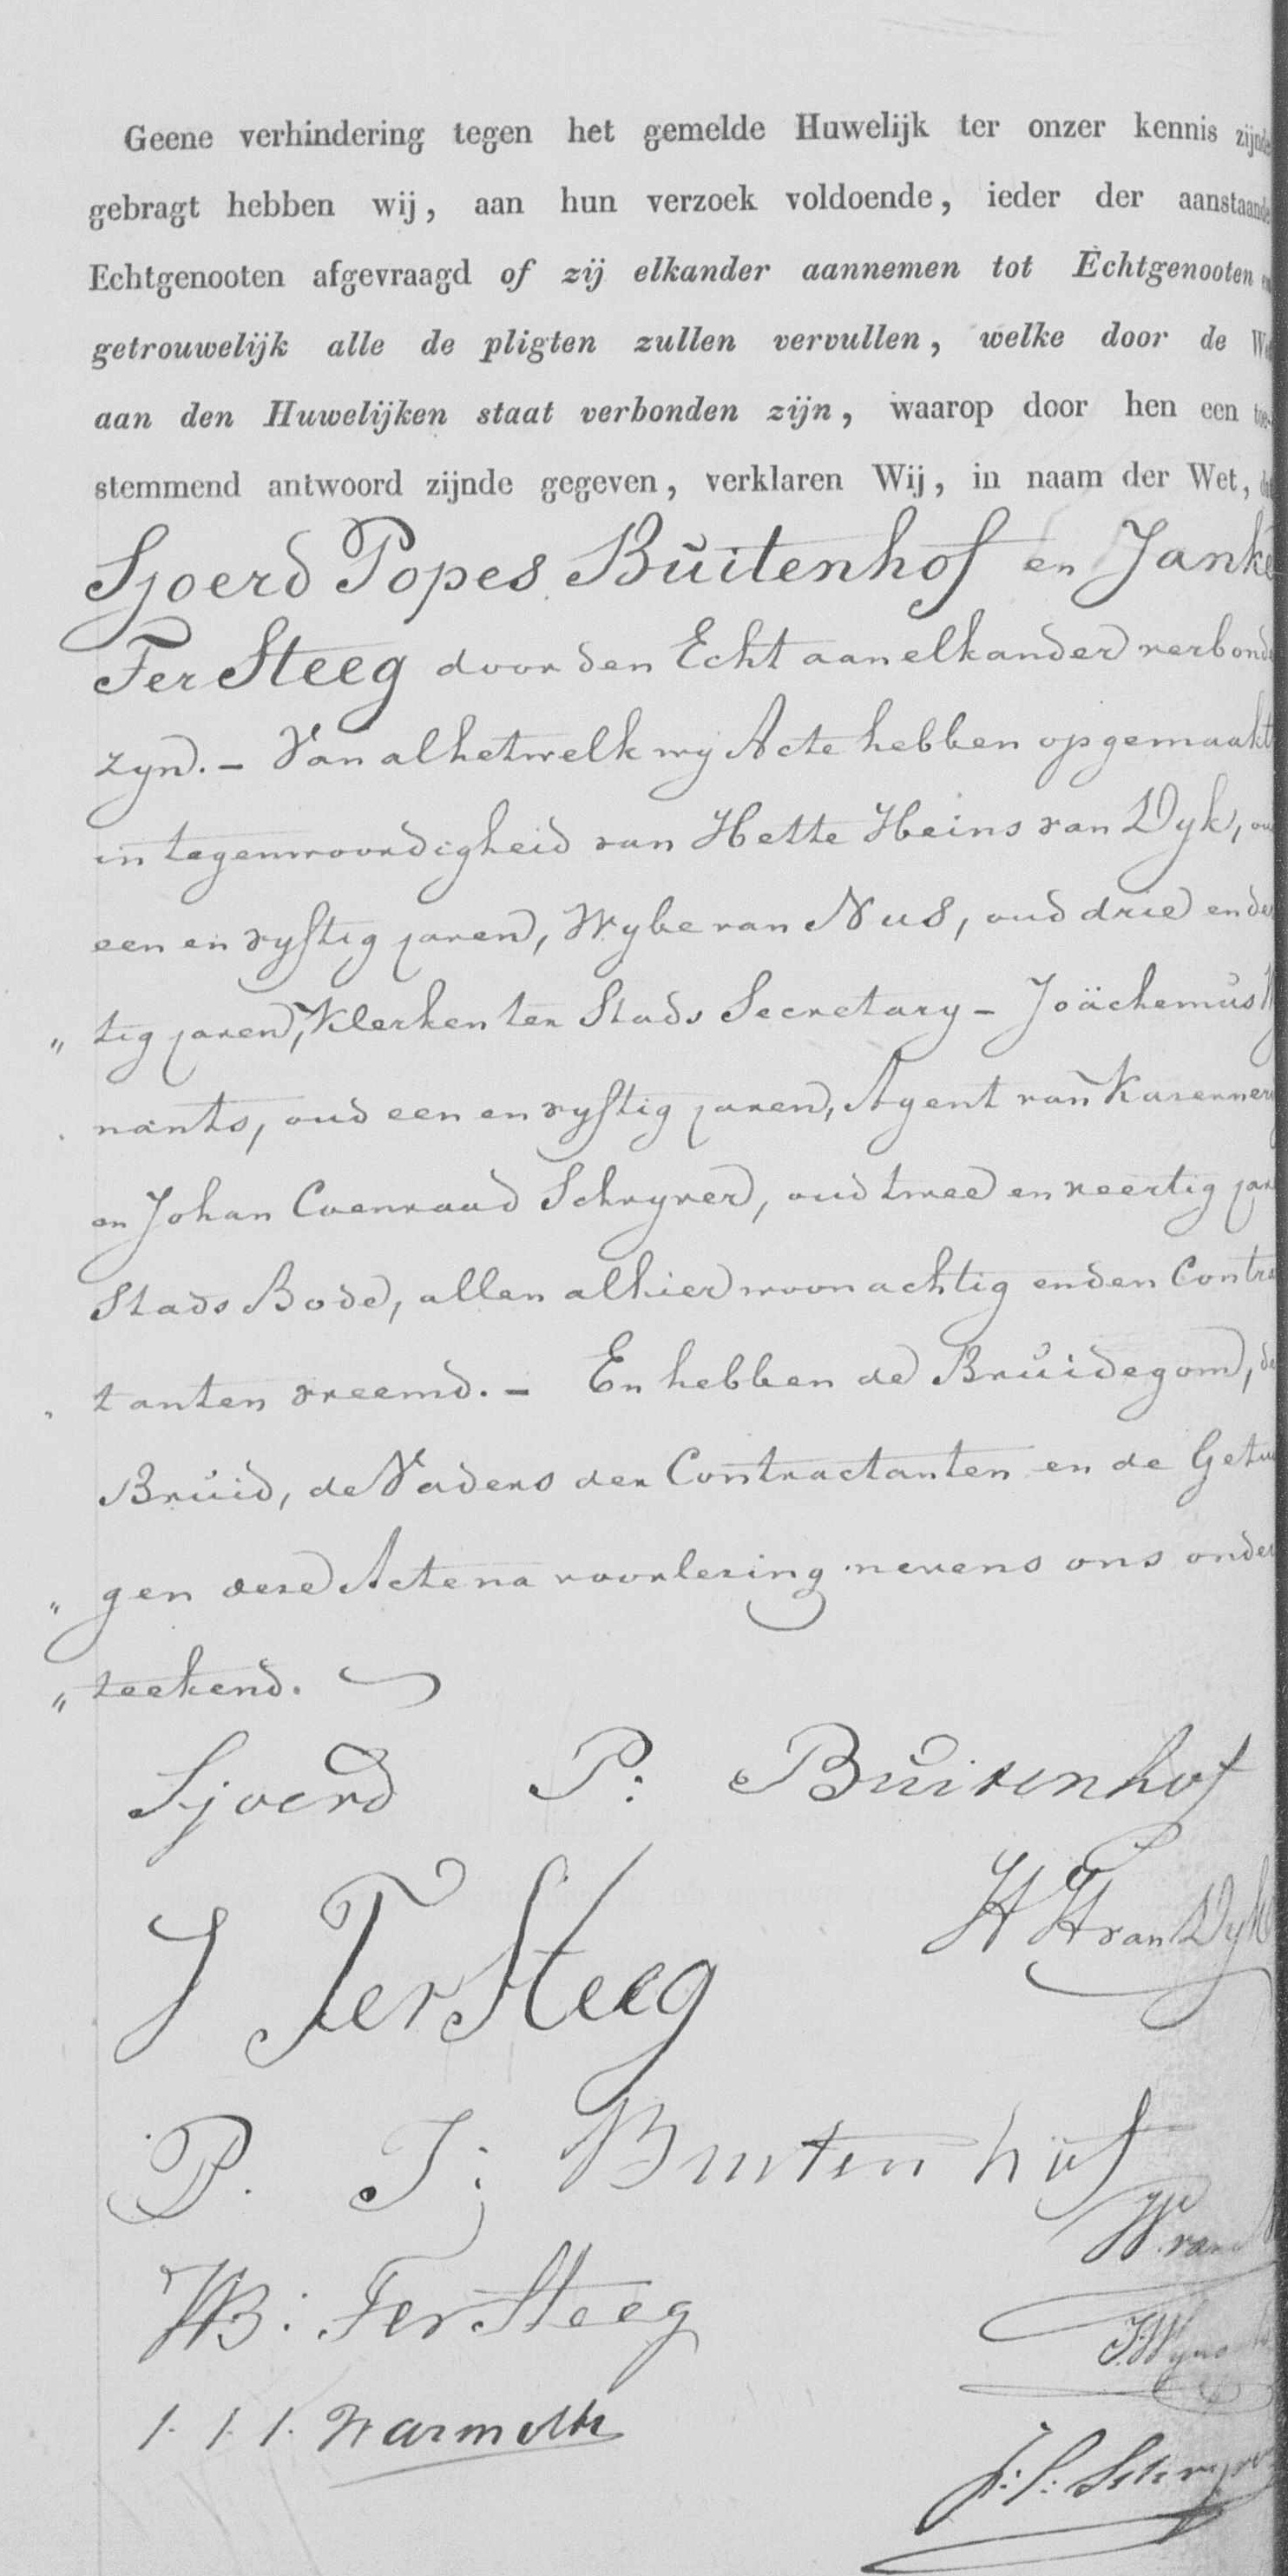 Geene verhindering tegen het gemelde Huwelijk ter onzer kennis zijnde
gebragt hebben wij, aan hun verzoek voldoende, ieder der aanstaande
Echtgenooten afgevraagd of zij elkander aannemen tot Echtgenooten en
getrouwelijk alle de pligten zullen vervullen, welke door de We
aan den Huwelijken staat verbonden zijn, waarop door hen een toe-
stemmend antwoord zijnde gegeven, verklaren Wij, in naam der Wet, da
Sjoerd Popes Buitenhof en Janke
Ter Steeg door den Echt aan elkander verbonde
zyn. - Van al hetwelk wy Acte hebben opgemaakt
in tegenwoordigheid van Hette Heins van Dyk, ou
een en vyftig jaren, Wybe van Nus, oud drie en der
„ tig jaren, Klerken ter Stads Secretary - Joächemus W
nants, oud een en vyftig jaren, Agent van Kasernering
en Johan Coenraad Schryver, oud twee en veertig jar
Stads Bode, allen alhier woonachtig en den Contrac
„ tanten vreemd. - En hebben de Bruidegom, de
Bruid, de Vaders der Contractanten en de Getui
„ gen deze Acte na voorlezing nevens ons onder
„ teekend.
Sjoerd P: Buitenhof
H H van Dyk
J Ter Steeg
P. S; Buitenhof
W van
W B: Ter Steeg
J: Wyna
J: C: Schryver